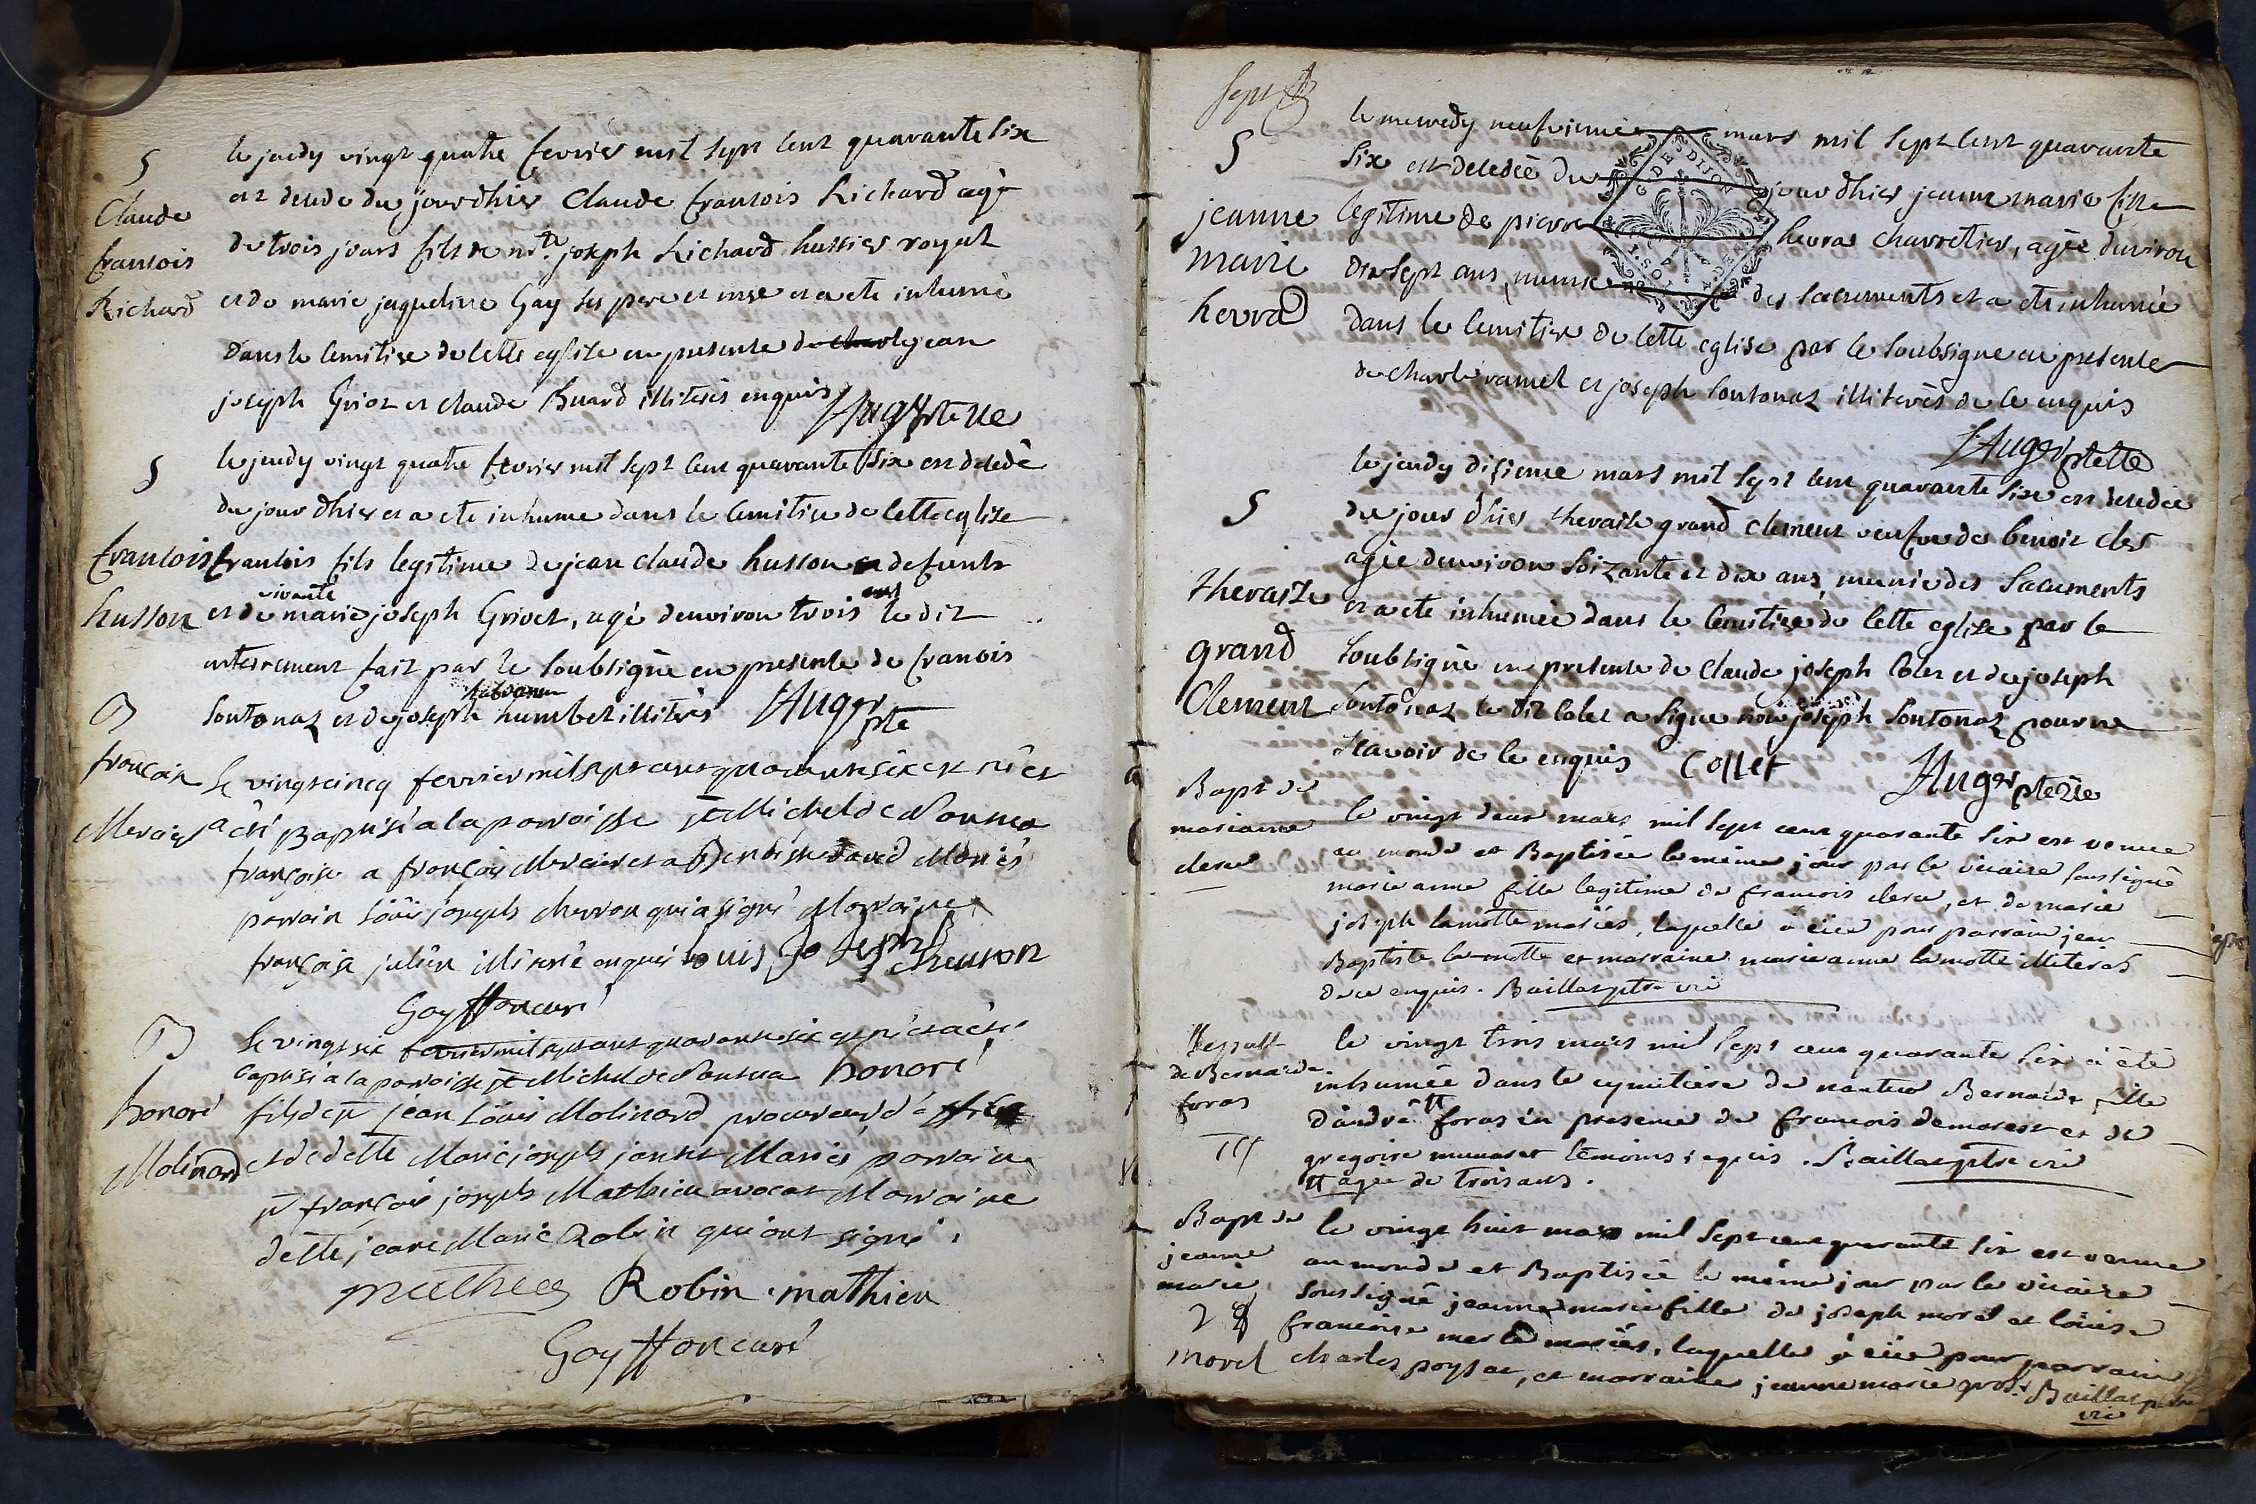 S
Claude
francois
Richard
le jeudy vingt quatre fevrier mil sept cent quarante six
est decedé du jour dhier Claude francois Richard agé
de trois jours fils de mtre joseph Richard huissier royal
et de marie jaqueline Gay ses pere et mere et a ete inhumé
dans le cemitiere de cette eglise en presence de charle jean
joseph Griot et claude Buard illiterés enquis
S
francois
husson
le jeudy vingt quatre fevrier mil sept cent quarante six est decedé
du jour dhier et a ete inhumé dans le cemitiere de cette eglise
francois fils legitime de jean claude husson defunt
vivante ans
et de marie joseph Grivet, agé denviron trois le dit
enterrement fait par le soubsigné en presence de francois
sontonaz et de joseph humbet illiterés JAuger
ptre
B
françois
Mercier
Le vingtcinq fevrier mil sept cent quarante six est né et
a été Baptisé a la parroisse st Michel de Nantua
françoise a françois Mercier et a Benoiste David Mariés
parrain Loüis joseph chevron qui a signé Marraine
françoise julien illiterée enquis louis joseph chevron
Gay ffon curé
B
honoré
Molinard
Le vingt six fevrier mil sept cent quarante six est né et a été
Baptisé a la parroisse st Michel de Nantua honoré
fils de sr jean Loüis Molinard procureur d'
et de delle Marie joseph jantet Mariés, parrain
sr françois joseph Mathieu avocat Marraine
delle jeane Marie Robin qui ont signé.
mathieu Robin mathieu
Gay ffon curé
sept
S
jeanne
marie
hevrad
le mercredy neufvieme mars mil sept cent quarante
six est decedée du jour dhier jeanne marie fille
legitime de pierre hevrad charretier, agée denviron
dix sept ans, munie des sacrements et a ete inhumée
dans le cemitiere de cette eglise par le soubsigne en presence
de charle ramel et joseph sontonaz illiterés de ce enquis
JAuger ptre
G DE DIJON
S
theraise
grand
Clement
le jeudy diziemе mars mil sept cent quarante six est decedée
du jour dhier theraise grand clement veufve de benoit cler
agée denviron soizante et dix ans munie des sacements
et a ete inhumée dans le cemitiere de cette eglise par le
soubsigné en presence de claude joseph colet et de joseph
sontonaz le dit colet a signe non joseph sontonaz pour ne
scavoir de ce enquis Collet
JAuger
Bapt de
mariane
clerc
le vingt deux mars mil sept cent quarante six est venue
au monde et Baptisée le même jour par le vicaire soussigné
marie anne fille legitime de francois clerc, et de marie
joseph lamotte mariés, laquelle a eüe pour parrain jean
Baptiste la motte et marraine marie anne la motte illiterés
de ce enquis. Baillat ptre vic
de Bernarde
foras
le vingt trois mars mil sept cent quarante six a été
inhumée dans le cymitiere de nantua Bernarde fille
d'andré foras en presence de francois demorest et de
gregoire munaret temoins requis. Baillat ptre vic
agée de trois ans.
Bapt de
jeanne
marie
morel
le vingt huit mars mil sept cent quarante six est venue
au monde et Baptisée le même jour par le vicaire
soussigné jeanne marie fille de joseph morel et loüise
francoise mariés, laquelle a eüe pour parrain
charles, et marraine jeanne marie Baillat ptre
vic